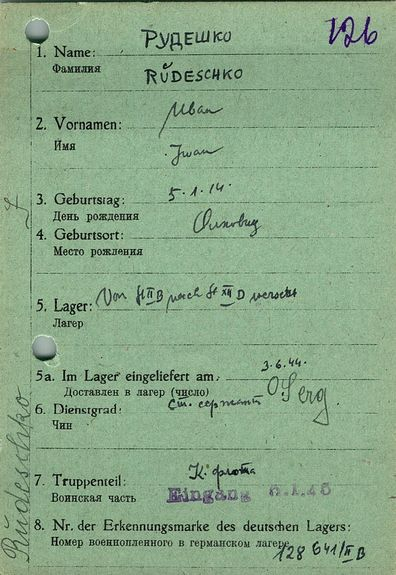 РУДЕШКО
126
1. Name:
Фамилия
RŬDESCHKO
Иван
2. Vornamen:
Имя
Iwan
3. Geburtstag: 5.1.14.
День рождения
4. Geburtsort:
Место рождения
5. Lager: Von St II B nach St XII D versetzt
Лагерь
5a. Im Lager eingeliefert am: 3.6.44.
Доставлен в лагерь (число)
6. Dienstgrad: Ст. сержант O'Serg.
Чин
7. Truppenteil: К. флота
Воинская часть Eingang
8. Nr. der Erkennungsmarke des deutschen Lagers:
Номер военнопленного в германском лагере
128641/II B
Rŭdeschko